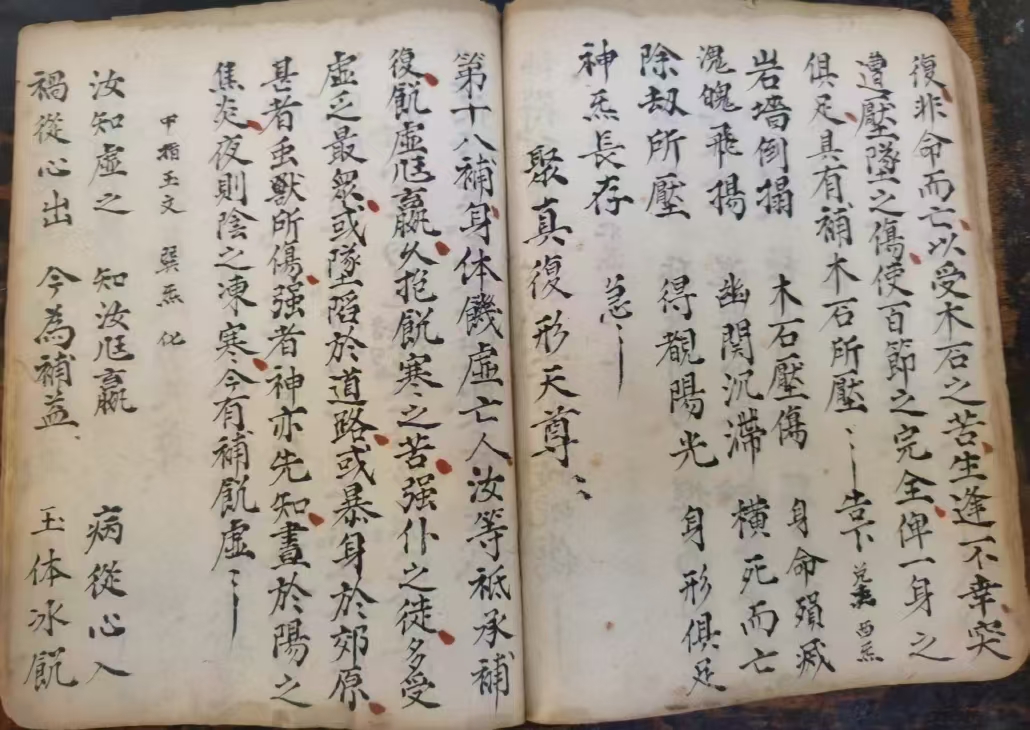 復非命而亡以受木石之苦生逢不幸突
遭壓墜之傷使百節之完全俾一身之
俱足具有補木石所壓〻告下兌炁西炁
岩墻倒搨 木石壓傷 身命殞滅
魂魄飛揚 幽関沉滯 橫死而亡
除劫所壓 得覩陽光 身形俱足
神炁長存 急〻
聚真復形天尊〻
第十八補身体饑虛亡人汝等祗承補
復飢虛尫羸久抱飢寒之苦强仆之徒多受
虛乏最衆或墜蹈於道路或暴身於郊原
甚者虫獸所傷强者神亦先知晝於陽之
焦炎夜則陰之凍寒今有補飢虛〻
中指玉文 巽炁化
汝知虛之 知汝尫羸 病從心入
禍從心出 今為補益 玉体冰飢